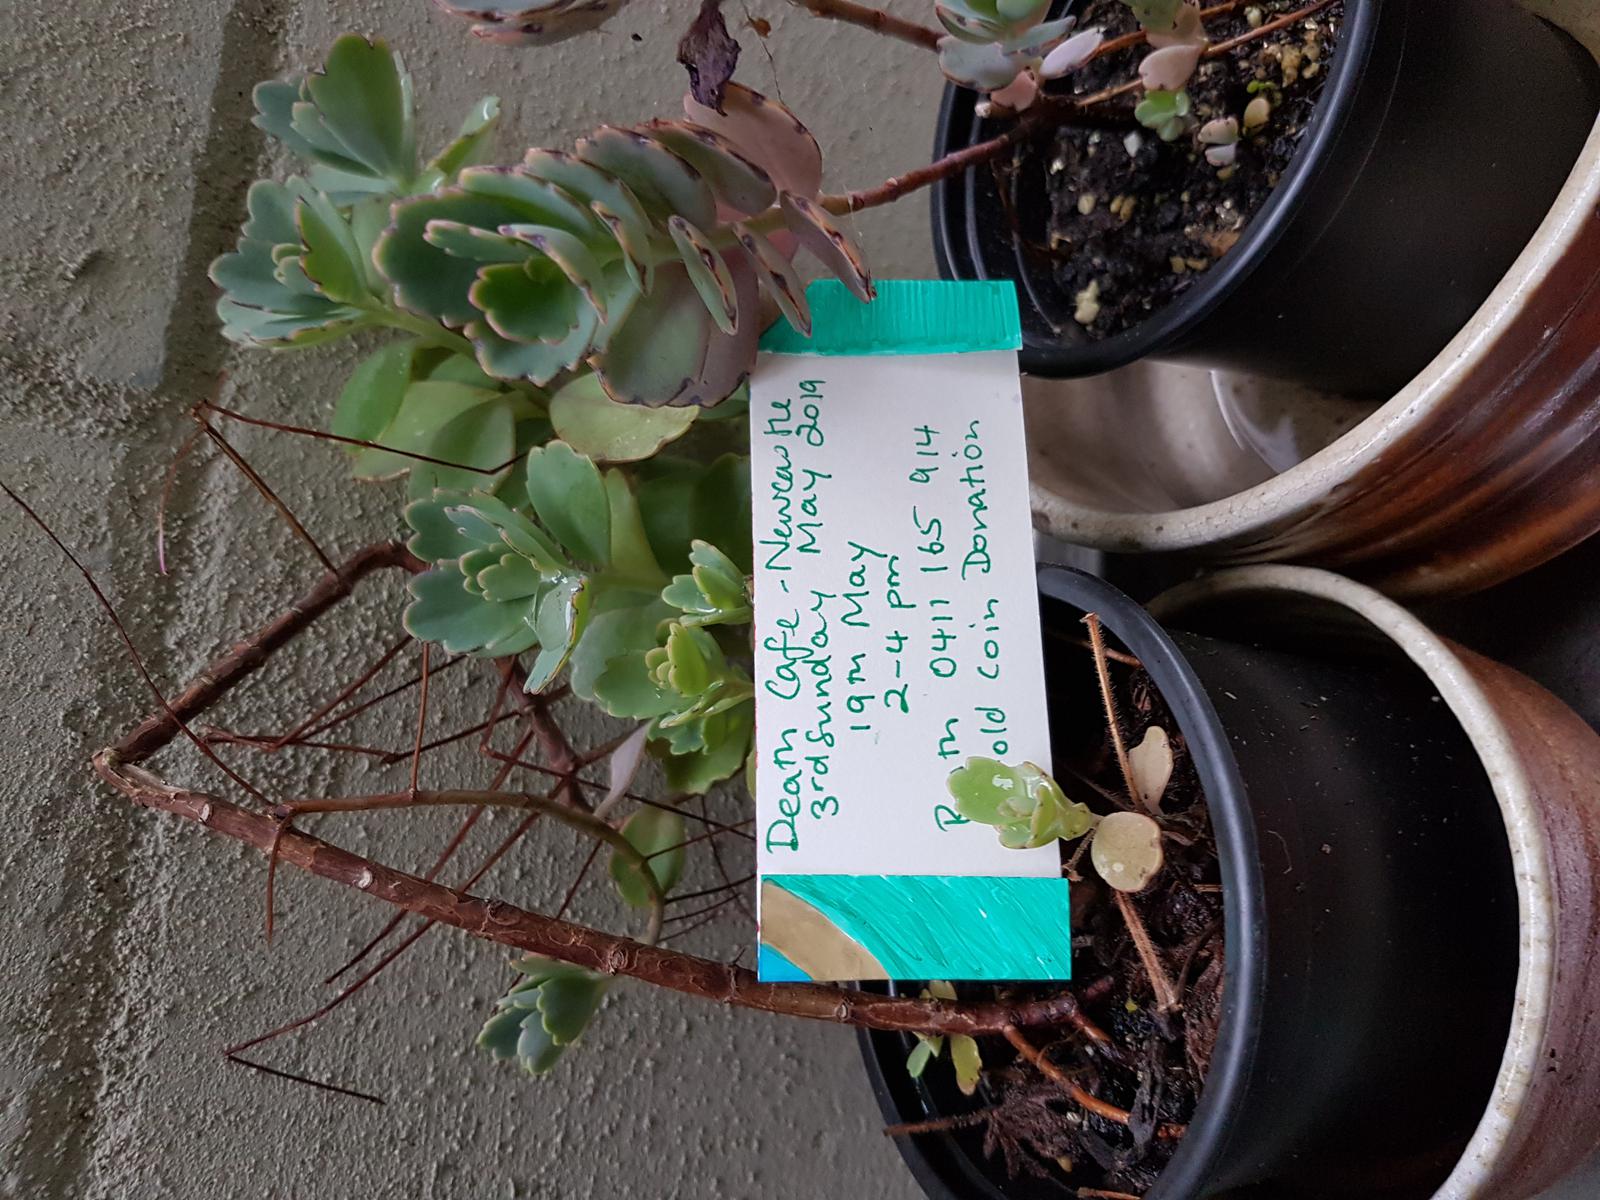 Death Cafe - Newcastle
3rd Sunday May 2019
19th May
2-4 pm
0411 165 914
old Coin Donation